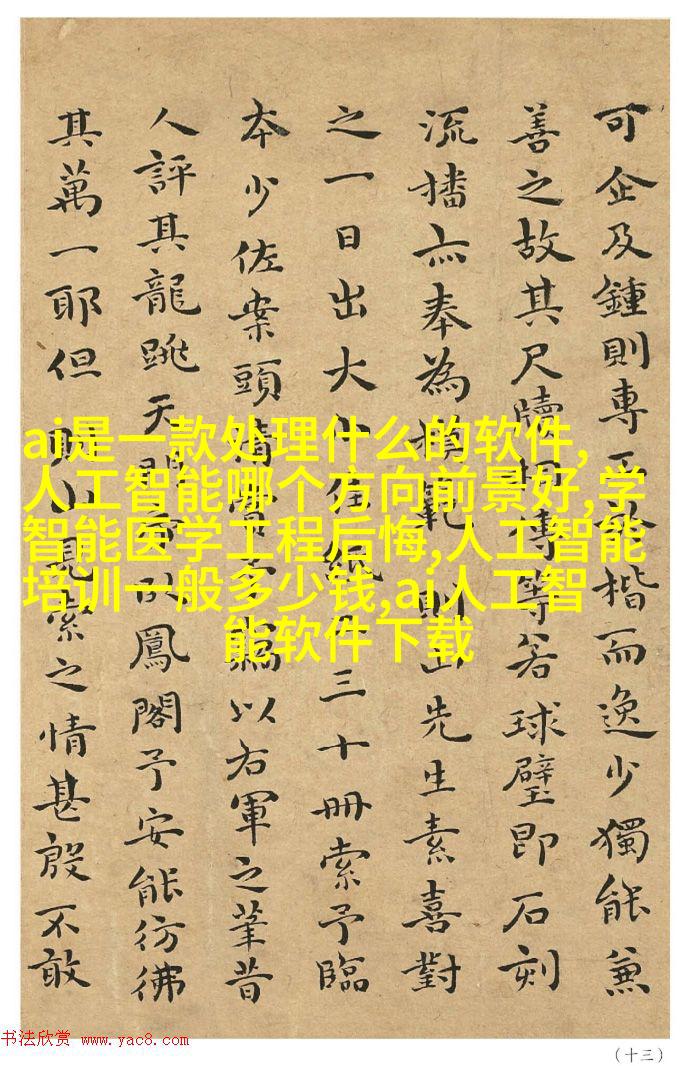 可企及鍾則專而逸少獨能兼
善之故其尺牘相傳等若球璧即石刻
流播亦奉為模範則山先生素喜對
之一日出大三十冊索予臨
本少佐案頭清以右軍之筆昔
人評其龍跳天門鳳閣予安能彷彿
其萬一耶但山見索之情甚殷不敢
ai是一款处理什么的软件,
人工智能哪个方向前景好,学
智能医学工程后悔,人工智能
培训一般多少钱,ai人工智
能软件下载
书法欣赏 www.yac8.com
(十三)